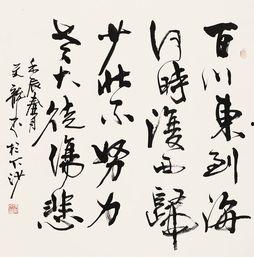 百川東到海
何時復西歸
少壯不努力
老大徒傷悲
壬辰春月
文龍書於下沙